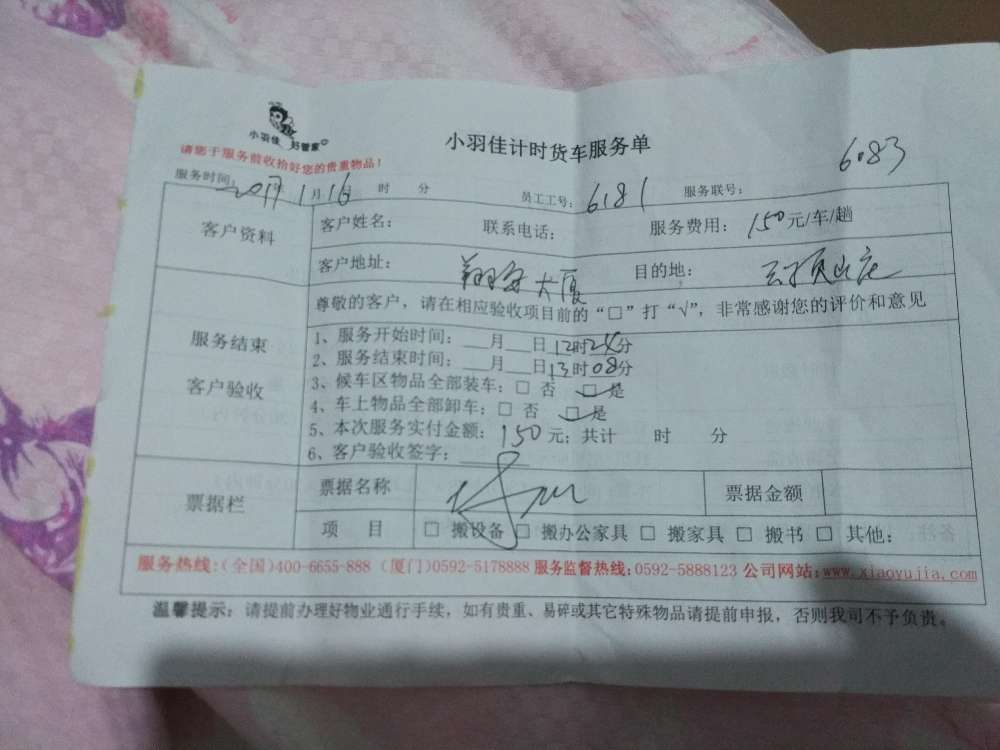 小羽佳 好管家
请您于服务前收拾好您的贵重物品！
小羽佳计时货车服务单
6083
服务时间：2017年1月16日 时 分 员工工号：6181 服务联号：
客户资料
客户姓名： 联系电话： 服务费用：150元/车/趟
客户地址：翔安大厦 目的地：云顶山庄
尊敬的客户，请在相应验收项目前的“□”打“√”，非常感谢您的评价和意见
服务结束
客户验收
1、服务开始时间：___月___日12时24分
2、服务结束时间：___月___日13时08分
3、候车区物品全部装车：□ 否 □ 是
4、车上物品全部卸车：□ 否 □ 是
5、本次服务实付金额：150元；共计 时 分
6、客户验收签字：
票据栏
票据名称 票据金额
项 目 □ 搬设备 □ 搬办公家具 □ 搬家具 □ 搬书 □ 其他：
服务热线：(全国)400-6655-888 (厦门)0592-5178888 服务监督热线：0592-5888123 公司网站：www.xiaoyujia.com
温馨提示：请提前办理好物业通行手续，如有贵重、易碎或其它特殊物品请提前申报，否则我司不予负责。